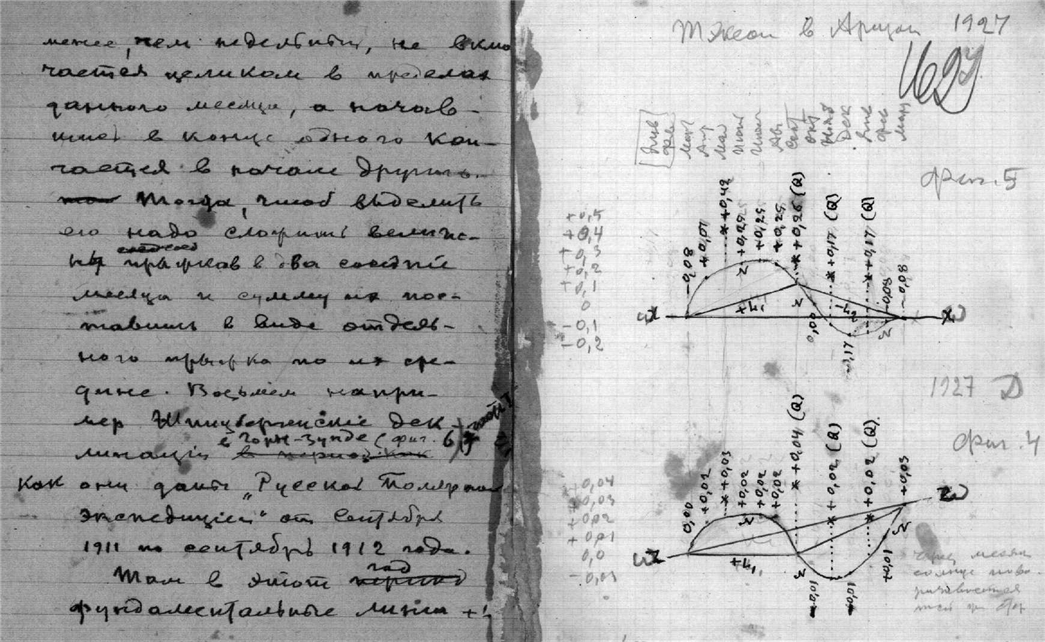 менее, чем недельный, не вклю
чается целиком в пределах
данного месяца, а начав-
шись в конце одного кон-
чается в начале другого.
Тогда, чтоб выделить
его надо сложить величи-
ны прыжков в два соседние
месяца и сумму их пос-
тавить в виде отдель-
ного прыжка по их сре-
дине. Возьмем напри-
мер Шпицбергенские дек
линации в Горн-Зунде (фиг. 6)
как они даны "Русской Полярной
экспедицией" от сентября
1911 по сентябрь 1912 года.
Там в этот год
фундаментальные линии +
в Аризон 1927
фиг. 5
+0,5
+0,4
+0,3
+0,2
+0,1
0
-0,1
-0,2
Янв
Фев
Март
Апр
Май
Июнь
Июль
Авг
Сент
Окт
Нояб
Дек
Янв
Фев
Март
-0,08
+0,07
+0,42
+0,25
+0,25
+0,25
+0,26 (Q)
0,00
+0,17 (Q)
-0,17
+0,17 (Q)
-0,08
-0,08
1927 D
фиг. 4
+0,04
+0,03
+0,02
+0,01
0,0
-0,01
0,00
+0,02
+0,03
+0,02
+0,02
+0,02
+0,04 (Q)
-0,01
+0,02 (Q)
-0,01
+0,02 (Q)
+0,01
+0,03
солнце